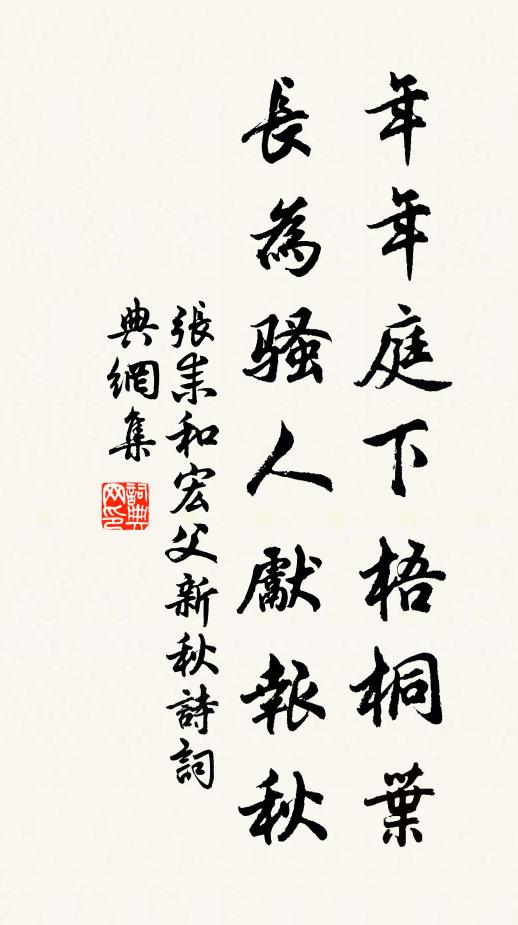 年年庭下梧桐葉
長為騷人獻報秋
張耒和宏父新秋詩詞
典網集
詞典
网印